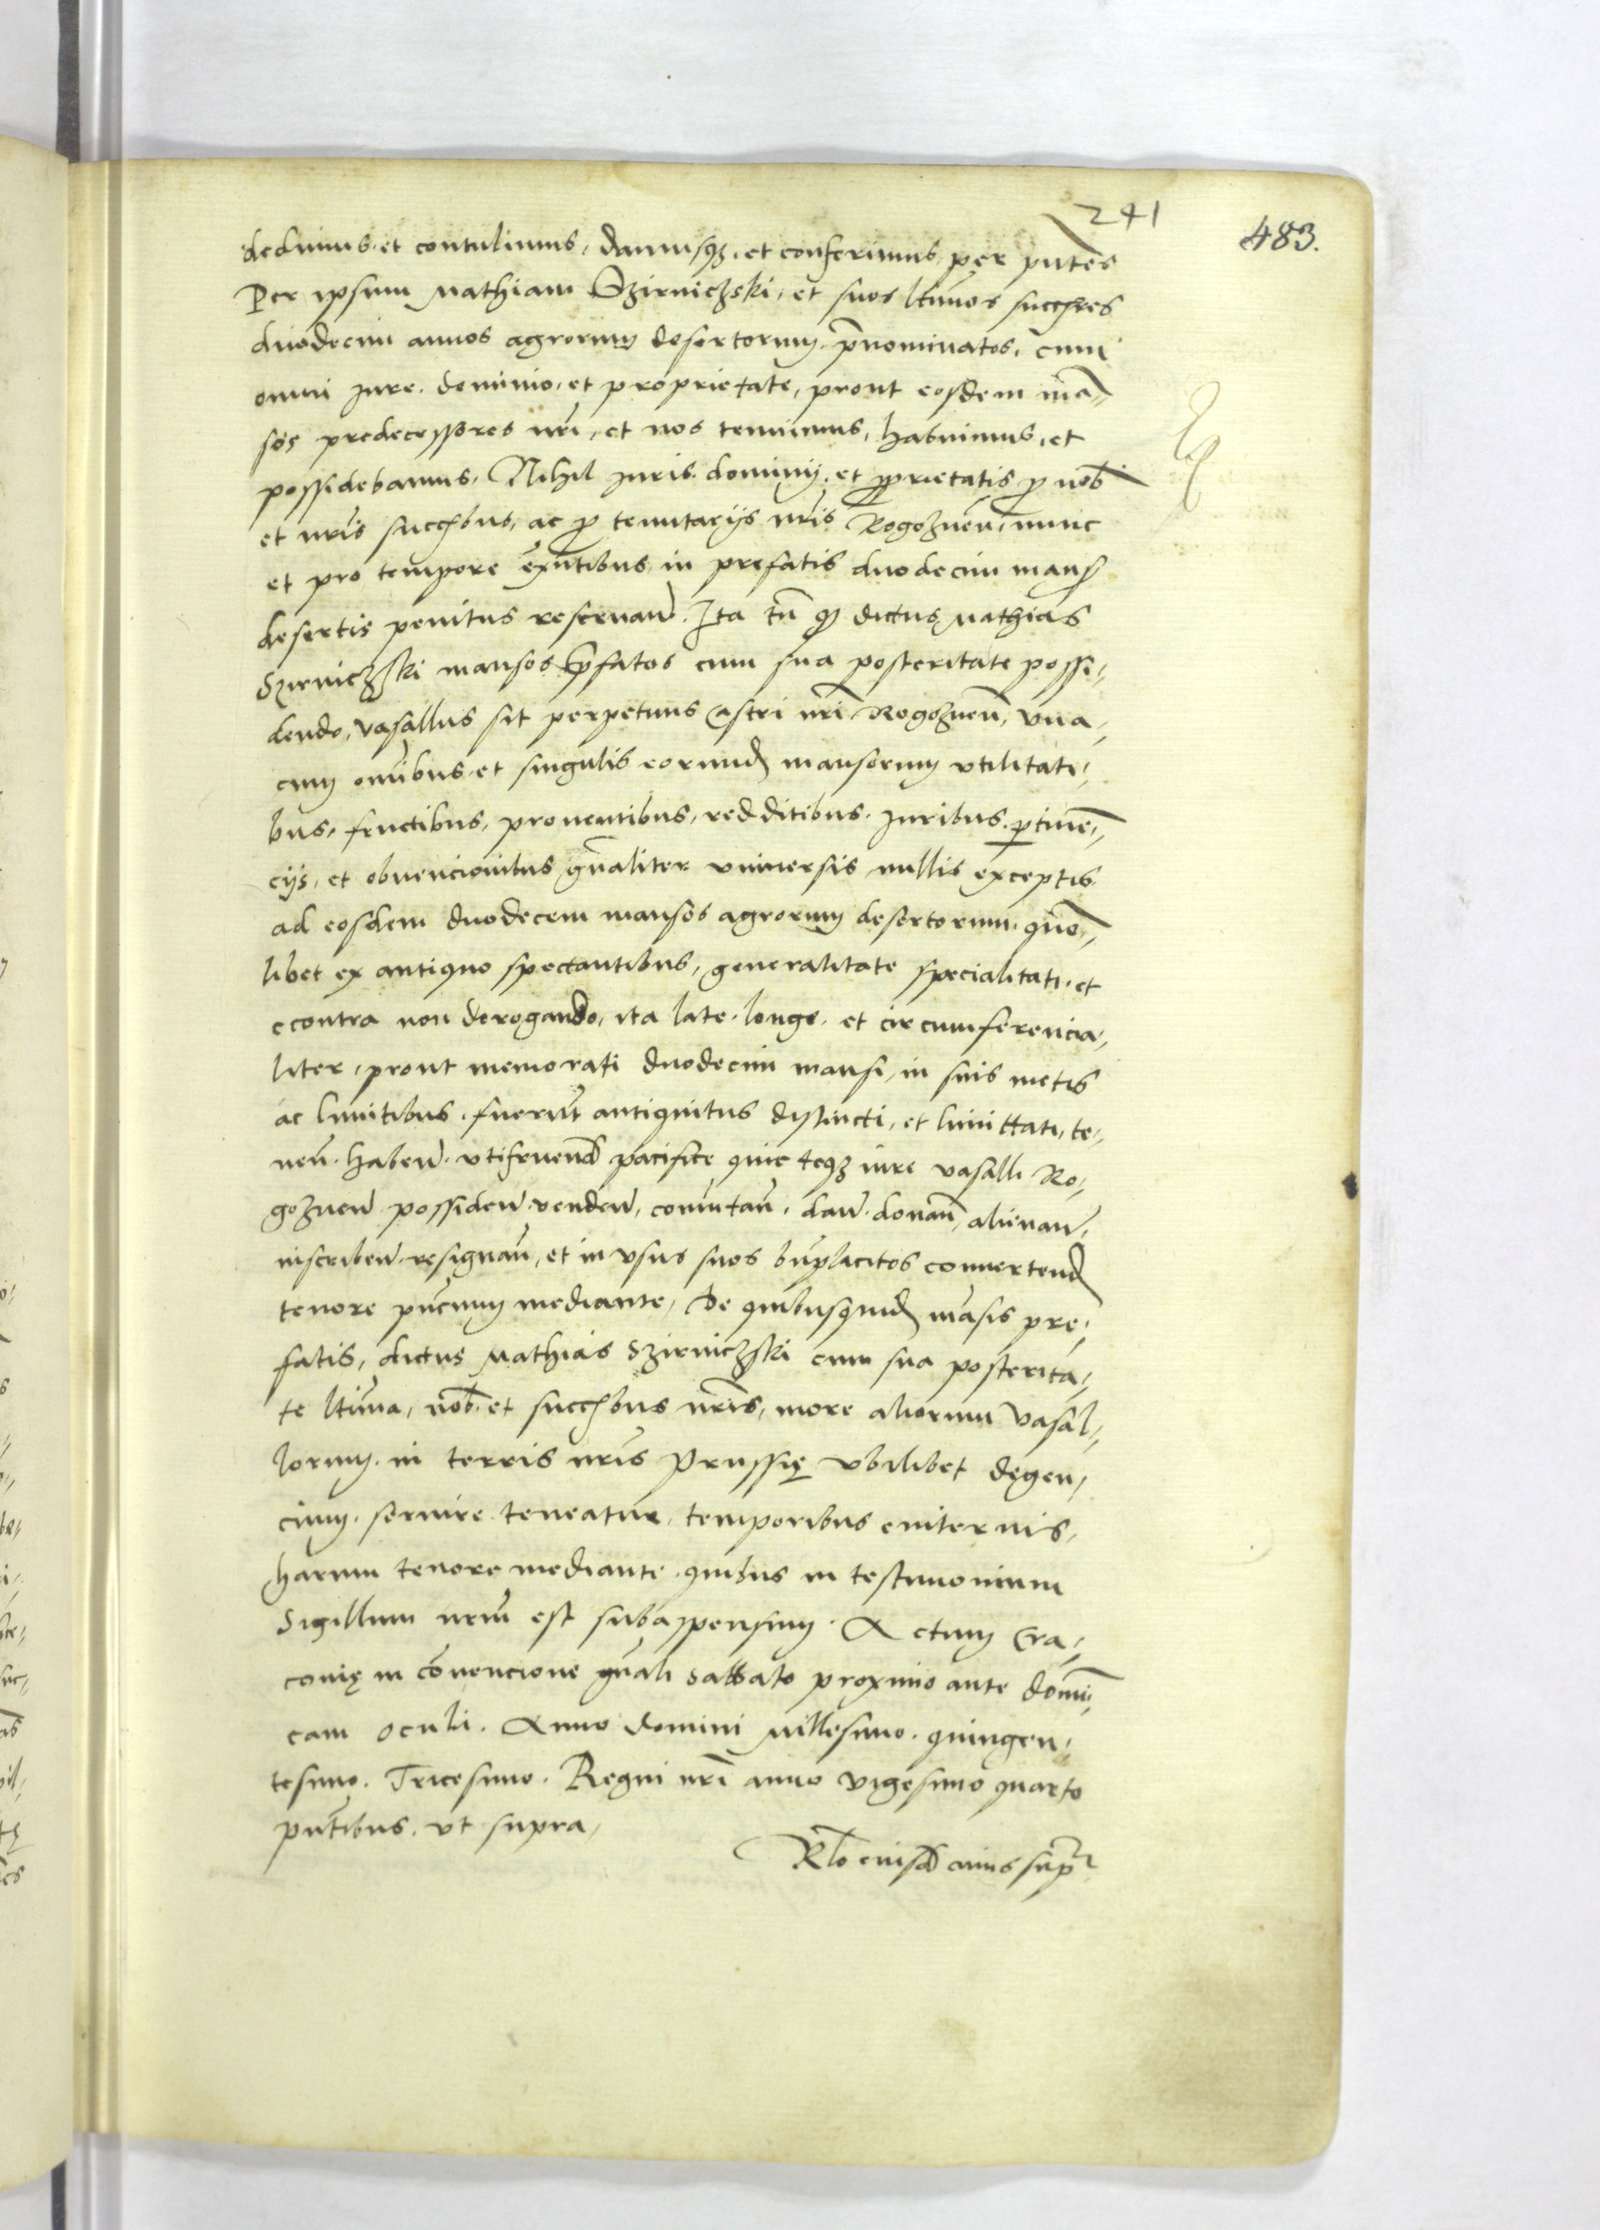 241
483.
dedimus et contulimus, damusqʒ et conferimus per pn̄tes
Per ipsum Mathiam Dzirniczski, et suos ltīmos succˢˢres
duodecim annos agrorum desertorum p̄nominatos, cum
omni jure dominio, et proprietate, prout eosdem mā„
sos predecessores nr̄i, et nos tenuimus, habuimus, et
possidebamus, Nihil juris dominij et ꝓprietatis ꝓ nob̄
et nr̄is succˢˢbus, ac ꝓ tenutarijs nr̄is Rogoznen̄ nunc
et pro tempore exn̄tibus in prefatis duodecim mansꝭ
desertis penitus reseruan̄. Ita tn̄ ꝙ dictus Mathias
Szirniczski mansos p̄fatos cum sua posteritate possi„
dendo, vasallus sit perpetuus castri nr̄i Rogoznen̄, vna„
cum omībus et singulis eorund̄ mansorum vtilitati„
bus, fructibus, prouentibus, redditibus juribus ꝑtinē„
cijs, et obuencionibus gn̄aliter vniuersis nullis exceptis
ad eosdem duodecem mansos agrorum desertorum quō„
libet ex antiquo spectantibus, generalitate specialitati et
econtra non derogando, ita late longe et circumferencia„
liter, prout memorati duodecim mansi, in suis metis
ac limitibus fuerūt antiquitus distincti, et limittati, te„
nen̄ haben̄ vtifruend̄ pacifice quieteqʒ jure vasalli Ro„
goznen̄ possiden̄ venden̄, comutan̄, dan̄ donan̄, alienan̄,
inscriben̄ resignan̄, et in vsus suos bn̄placitos conuertend̄
tenore pn̄cium mediante, De quibusquid̄ māsis pre„
fatis, dictus Mathias Szirniczski cum sua posterita„
te ltīma, nob̄ et succˢˢbus nr̄is, more aliorum vasal„
lorum in terris nr̄is Prussię vbilibet degen„
cium seruire teneatur temporibus euiternis,
harum tenore mediante quibus in testimonium
Sigillum nrm̄ est subappensum. Actum Cra„
couię in cōuencione gn̄ali sabbato proximo ante domi„
cam oculi. Anno domini Millesimo quingen„
tesimo Tricesimo. Regni nr̄i anno vigesimo quarto
pn̄tibus vt supra,
Rl̄o eiusd̄ cuius supꝰ